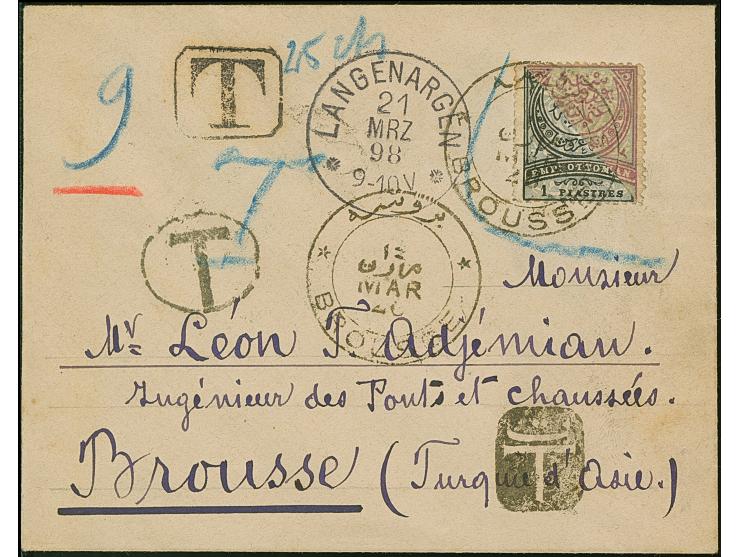 9
T
25 cts
LANGENARGEN
21
MRZ
98
9-10V
* *
T
T
BROUSSE
EMP. OTTOMAN
1 PIASTRES
بروسه
١٤
مارت
MAR
26
BROUSSE
Monsieur
Mr Léon T. Adjémian.
Ingénieur des Ponts et chaussées.
Brousse (Turquie d'Asie.)
T